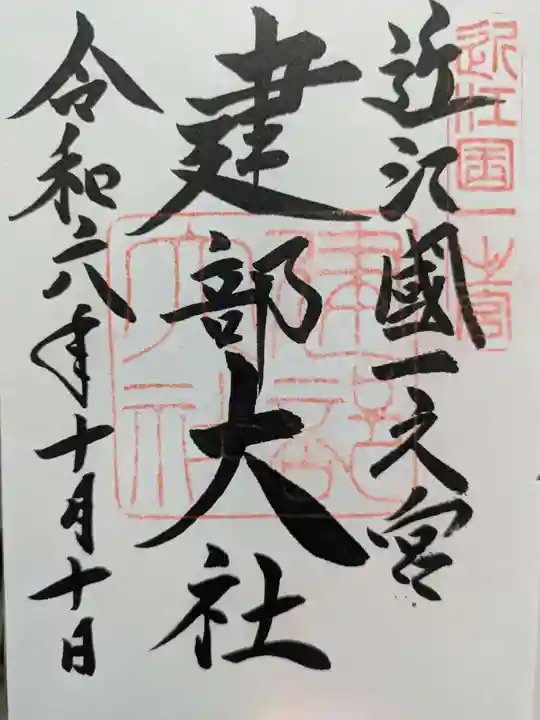 近江國一之宮
近江國一之宮
建部大社
建部大社
令和六年十月十日